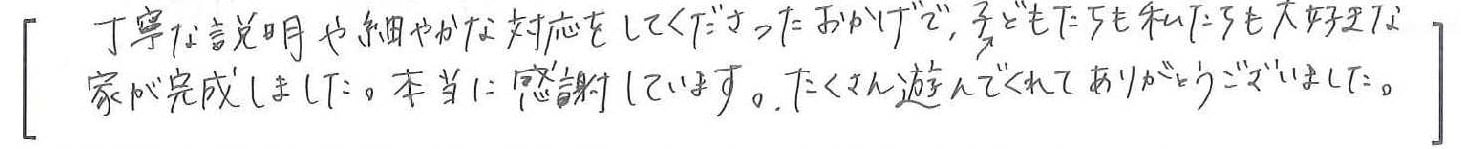 丁寧な説明や細やかな対応をしてくださったおかげで、子どもたちも私たちも大好きな
家が完成しました。本当に感謝しています。たくさん遊んでくれてありがとうございました。